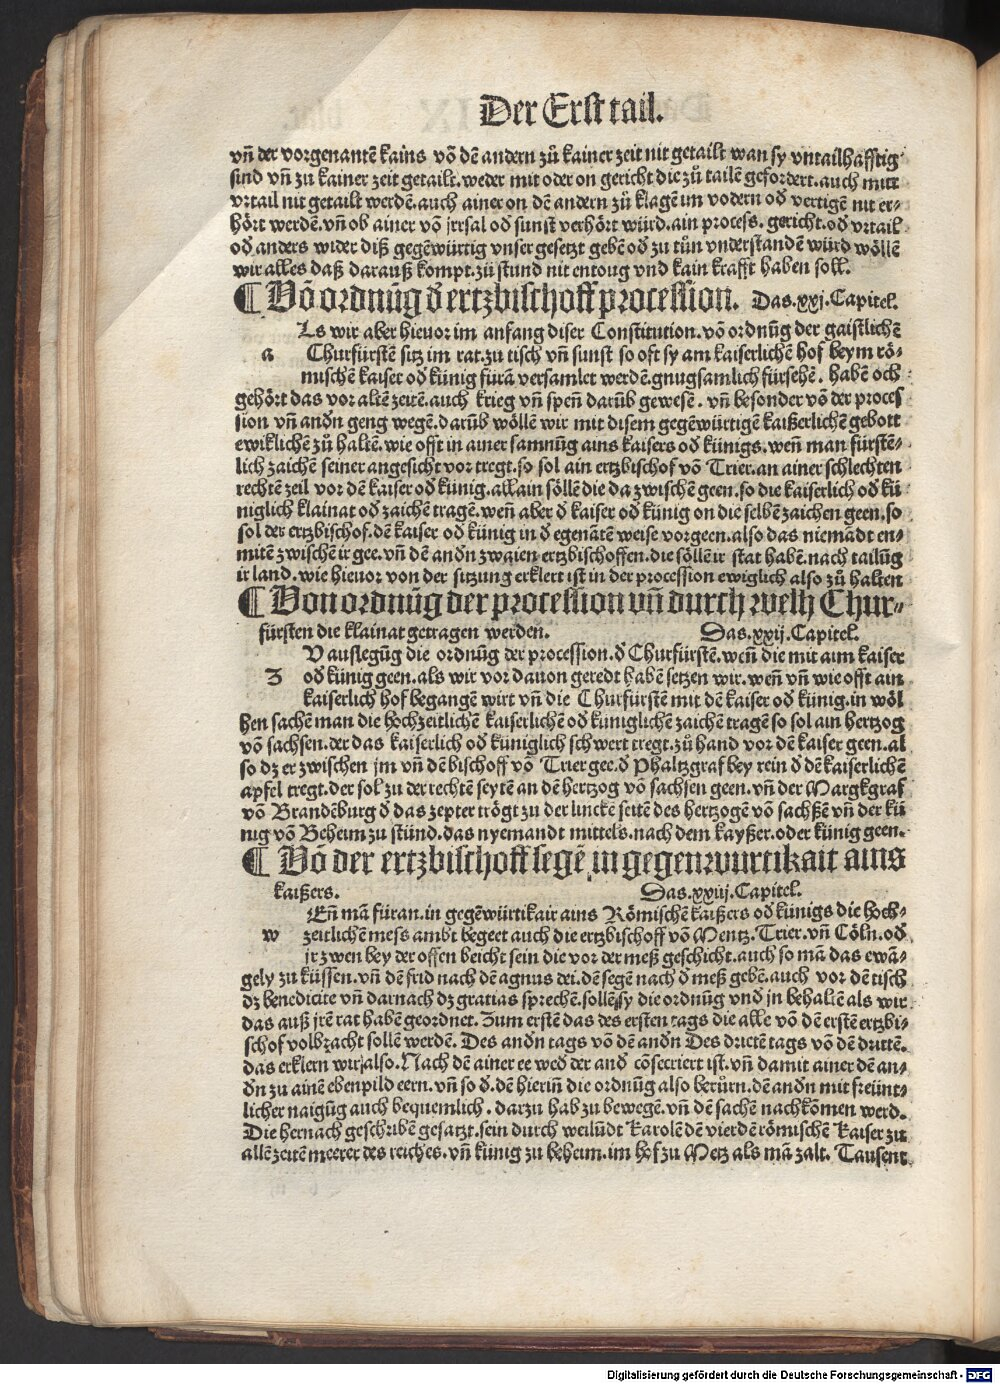 Der Erst tail.
vn̄ der vorgenantē kains vō dē andern zů kainer zeit nit getailt wan sy vntailhafftig
sind vn̄ zu kainer zeit getailt. weder mit oder on gericht die zů tailē gefordert. auch mitt
vrtail nit getailt werdē. auch ainer on dē andern zů klagē im vodern oď vertigē nit er-
hört werdē. vn̄ ob ainer vō jrrsal oď sunst verhört würd. ain process. gericht. oď vrtail
oď anders wider diß gegēwürtig vnser gesetzt gebē oď zu tůn vnderstandē würd wöllē
wir alles daß darauß kompt. zů stund nit entoug vnd kain krafft haben soll.
¶ Vō ordnūg ď ertzbischoff procession. Das. xxj. Capitel.
Ls wir aber hieuor im anfang diser Constitution. vō ordnūg der gaistlichē
a Churfürstē sitz im rat. zu tisch vn̄ sunst so oft sy am kaiserlichē hof beym rö-
mischē kaiser oď künig fürā versamlet werdē. gnugsamlich fürsehē. habē och
gehört das vor altē zeitē. auch krieg vn̄ spen̄ darūb gewesē. vn̄ besonder vō der proces
sion vn̄ anďn geng wegē. darūb wöllē wir mit disem gegēwürtigē kaißerlichē gebott
ewiklichē zů haltē. wie offt in ainer samnūg ains kaisers oď künigs. wen̄ man fürstē-
lich zaichē seiner angesicht vor tregt. so sol ain ertzbischof vō Trier. an ainer schlechten
rechtē zeil vor dē kaiser oď künig. allain söllē die da zwischē geen. so die kaiserlich oď kü
niglich klainat oď zaichē tragē. wen̄ aber ď kaiser oď künig on die selbē zaichen geen. so
sol der ertzbischof. dē kaiser oď künig in ď egenātē weise vorgeen. also das niemādt en-
mitē zwischē ir gee. vn̄ dē anďn zwaien ertzbischoffen. die söllē ir stat habē. nach tailūg
ir land. wie hieuor von der sitzung erklert ist in der procession ewiglich also zů halten
¶ Von ordnūg der procession vn̄ durch welh Chur-
fürsten die klainat getragen werden. Das. xxij. Capitel.
V auslegūg die ordnūg der procession. ď Churfürstē. wen̄ die mit aim kaiser
Z oď künig geen. als wir vor dauon geredt habē setzen wir. wen̄ vn̄ wie offt ain
kaiserlich hof begangē wirt vn̄ die Churfürstē mit dē kaiser oď künig. in wöl
hen sachē man die hochzeitlichē kaiserlichē oď küniglichē zaichē tragē so sol ain hertzog
vō sachsen. der das kaiserlich oď küniglich schwert tregt. zů hand vor dē kaiser geen. al
so dz er zwischen jm vn̄ dē bischoff vō Trier gee. ď Phaltzgraf bey rein ď dē kaiserlichē
apfel tregt. der sol zu der rechtē seytē an dē hertzog vō sachsen geen. vn̄ der Margkgraf
vō Brandēburg ď das zepter trögt zu der linckē seitē des hertzogē vō sachßē vn̄ der kü
nig vō Beheim zu stünd. das nyemandt mittels. nach dem kayßer. oder künig geen.
¶ Vō der ertzbischoff segē in gegenwurtikait ains
kaißers. Das. xxiij. Capitel.
En̄ mā füran. in gegēwürtikait ains Römischē kaißers oď künigs die hoch-
w zeitlichē mess ambt begeet auch die ertzbischoff vō Mentz. Trier. vn̄ Cöln. oď
jr zwen bey der offen beicht sein die vor der meß geschicht. auch so mā das ewā-
gely zu küssen. vn̄ dē frid nach dē agnus dei. dē segē nach ď meß gebē. auch vor dē tisch
dz benedicite vn̄ darnach dz gratias sprechē. sollē sy die ordnūg vnd jn behaltē als wir
das auß jrē rat habē geordnet. Zum erstē das des ersten tags die alle vō dē erstē ertzbi-
schof volbracht sollē werdē. Des anďn tags vō dē anďn Des drittē tags vō dē drittē.
das erklern wir also. Nach dē ainer ee weď der anď cōsecriert ist. vn̄ damit ainer dē an-
ďn zu ainē ebenpild eern. vn̄ so ď. dē hierin̄ die ordnūg also berůrn. dē anďn mit freünt-
licher naigūg auch bequemlich. darzu hab zu bewegē. vn̄ dē sachē nachkōmen werd.
Die hernach geschribē gesatzt. sein durch weilūdt Karolē dē vierdē römischē Kaiser zu
allē zeitē meerer des reiches. vn̄ künig zu beheim. im hof zu Metz als mā zalt. Tausent
Digitalisierung gefördert durch die Deutsche Forschungsgemeinschaft - DFG